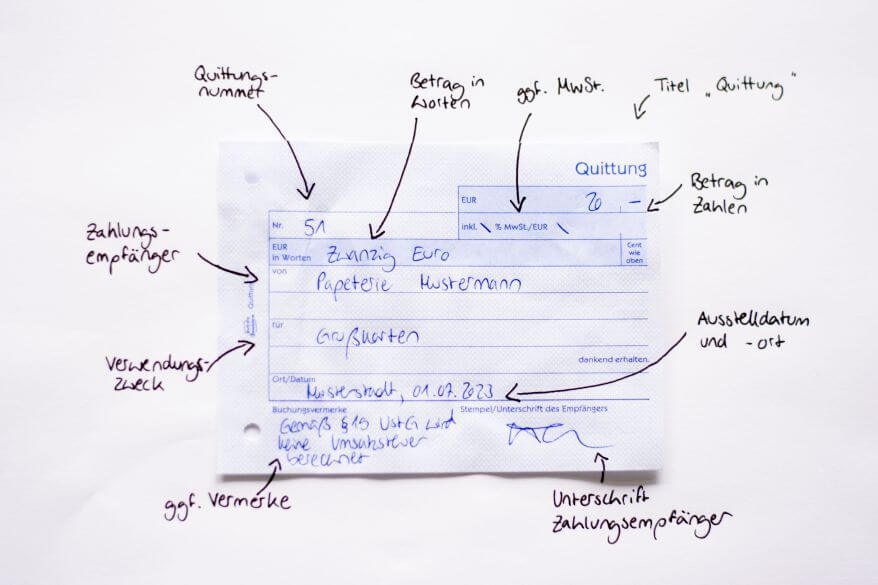 Quittungs-
nummer
Betrag in
Worten
ggf. MwSt.
Titel „Quittung"
Quittung
Betrag in
Zahlen
EUR 20,–
Nr. 51
inkl. \ % MwSt./EUR \
Zahlungs-
empfänger
EUR
in Worten Zwanzig Euro
Cent
wie
oben
von
Papeterie Mustermann
Quittung
für
Grußkarten
Ausstelldatum
und -ort
Verwendungs-
zweck
dankend erhalten.
Ort/Datum
Musterstadt, 01.07.2023
Buchungsvermerke
Stempel/Unterschrift des Empfängers
Gemäß §19 UstG wird
keine Umsatzsteuer
berechnet
ggf. Vermerke
Unterschrift
Zahlungsempfänger